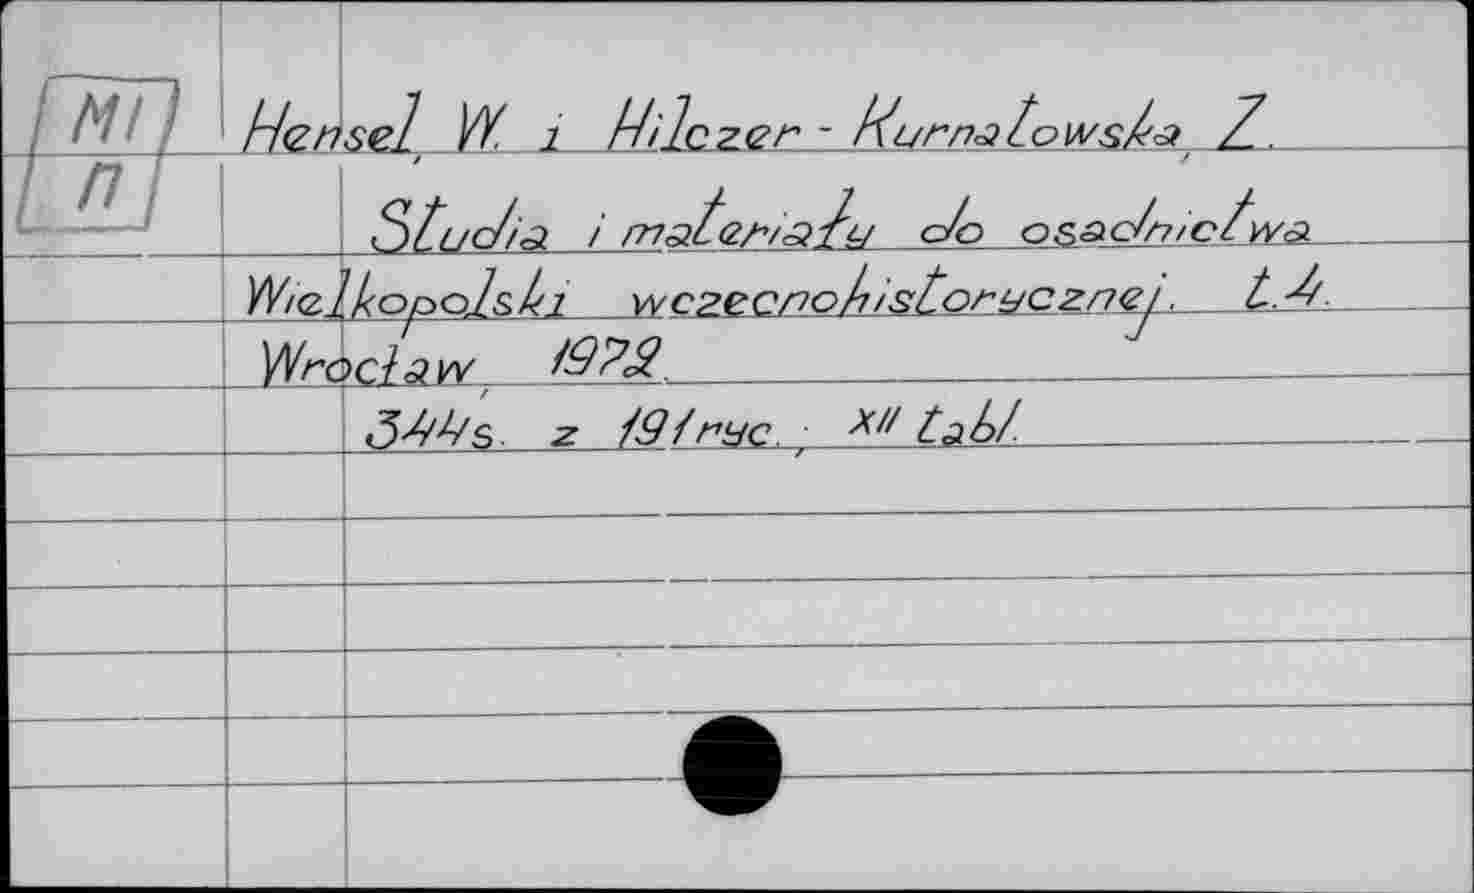 MI
П
Hensel, W. i Hilczer-Kurnatowska, Z.
Studia i materiały do osadnictwa
Wielkopolski wczecnohistorycznej. t.4.
Wrocław, 1972.
344s. z 191 ryc.; XII tabl.